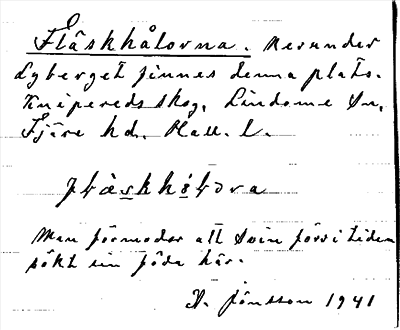 Fläskhålorna. Nerunder
Lyberget finnes denna plats.
Knipereds skog, Lindome Sn,
Fjäre hd. Hall. l.
Man förmodar att Svin förr i tiden
sökt sin föda här.
A. Jönsson 1941